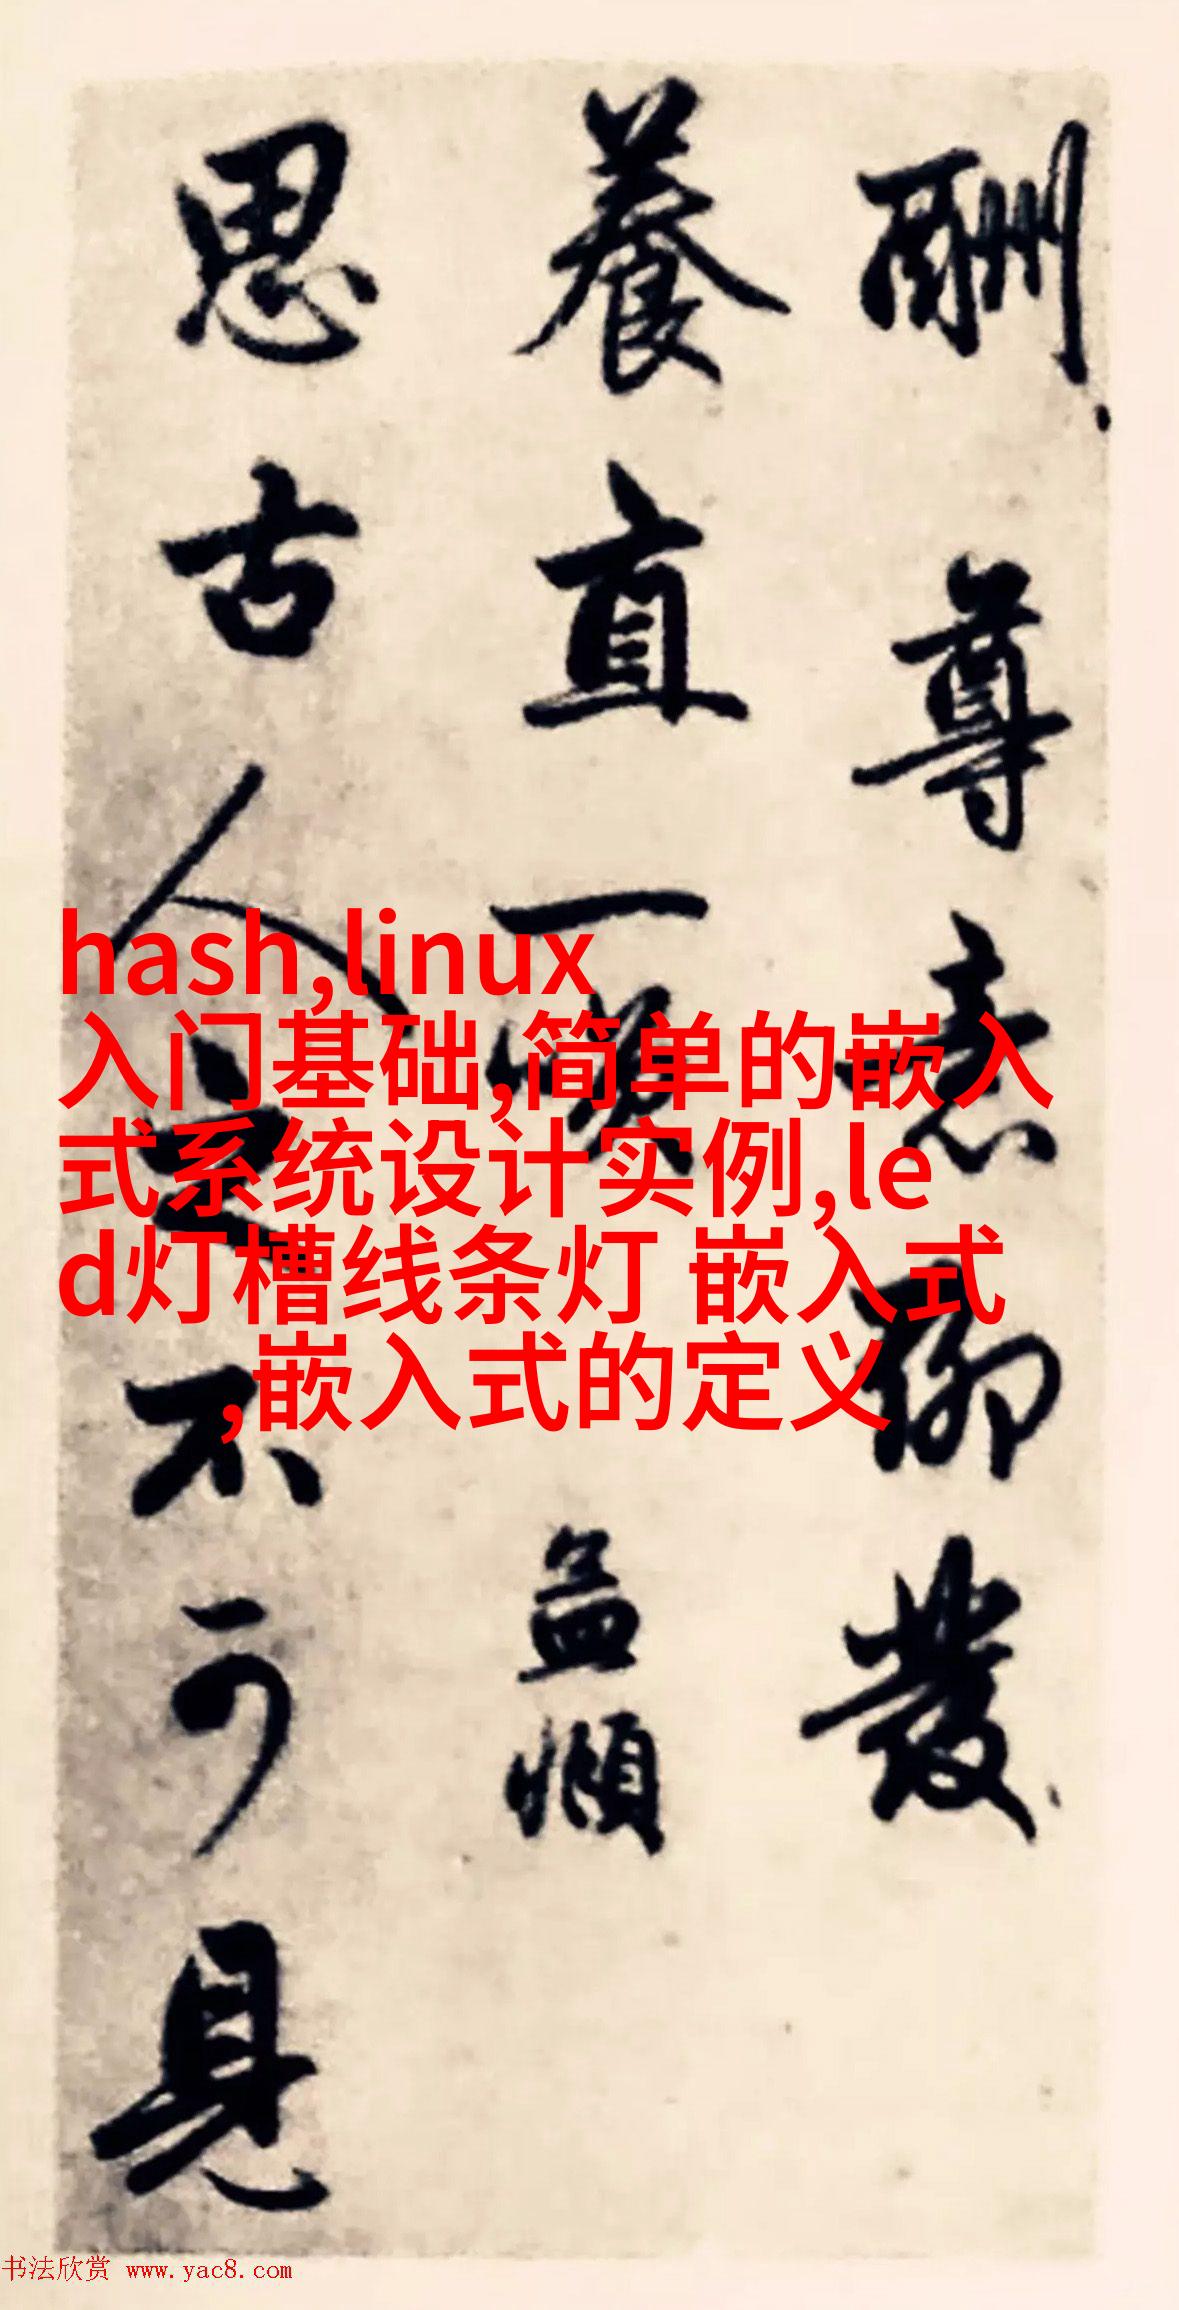 酬尊聊發
養直一 孟頫
思古人之不可見
hash,linux
入门基础,简单的嵌入
式系统设计实例,le
d灯槽线条灯 嵌入式
,嵌入式的定义
书法欣赏 www.yac8.com